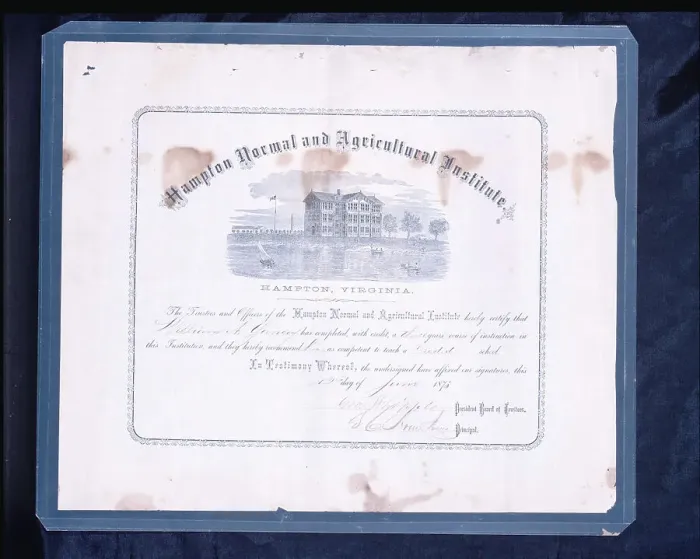 Hampton Normal and Agricultural Institute.
HAMPTON, VIRGINIA.
The Trustees and Officers of the Hampton Normal and Agricultural Institute hereby certify that
William A. has completed, with credit, a three years' course of instruction in
this Institution, and they hereby recommend as competent to teach a Graded school
In Testimony Whereof, the undersigned have affixed our signatures, this
day of June 187
President Board of Trustees.
Principal.